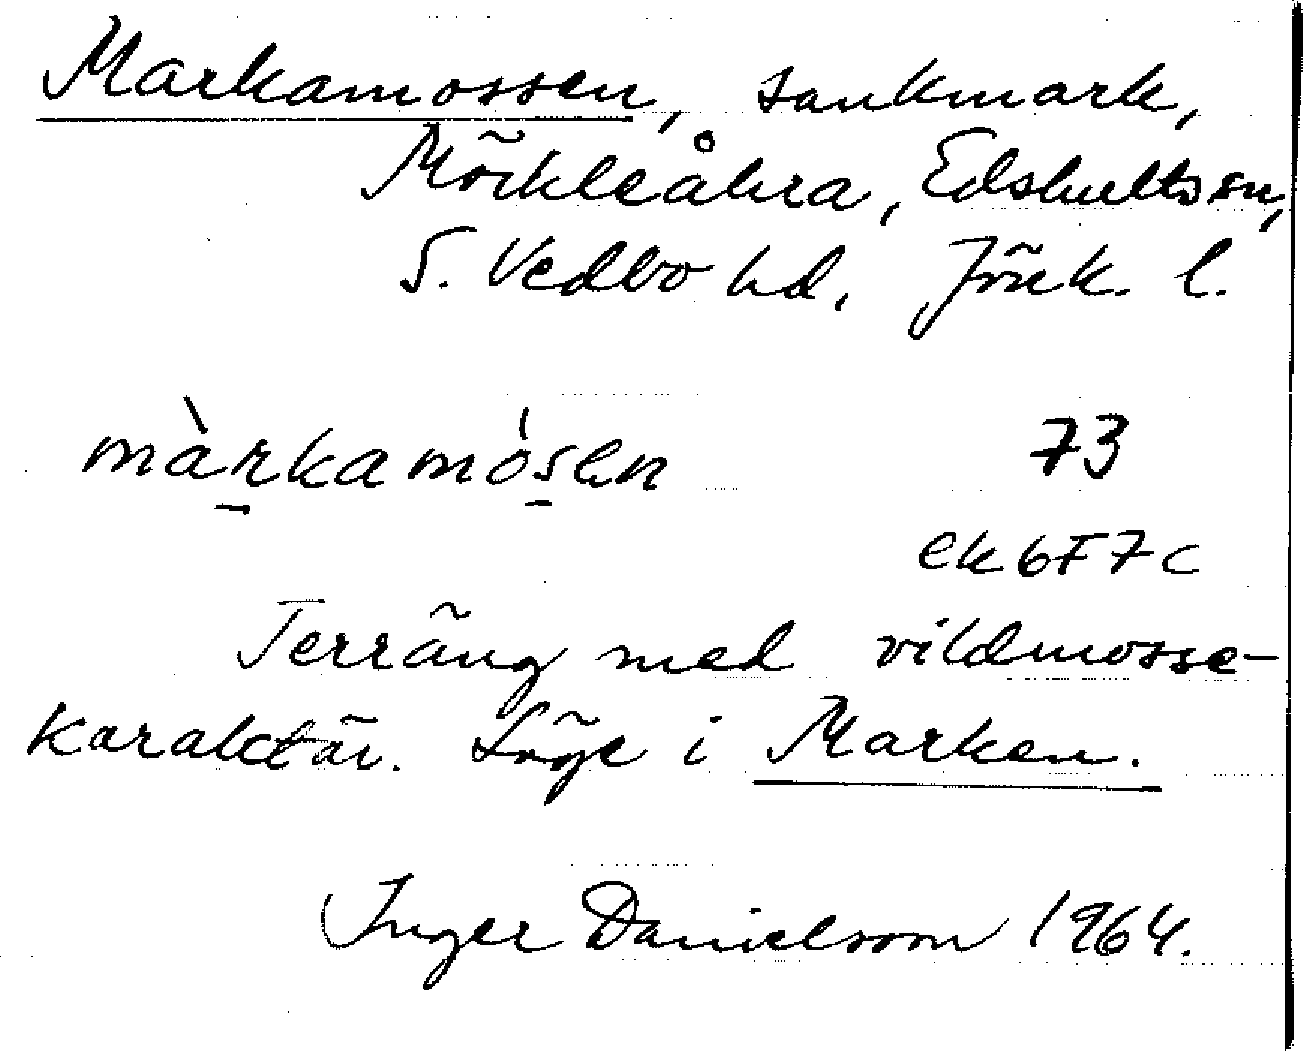 Markamossen, sankmark,
Möckleåkra, Edshults sn,
S. Vedbo hd, Jönk. l.
màrkamósen 73
ek 6F7c
Terräng med vildmosse-
karaktär. Läge i Marken.
Inger Danielsson 1964.